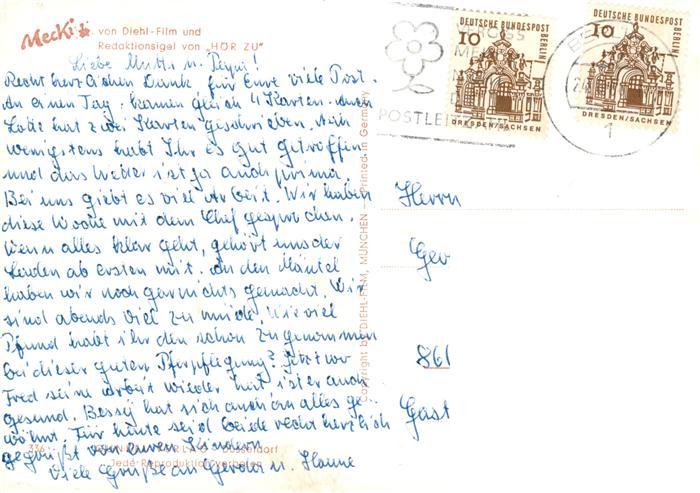 Mecki von Diehl-Film und
Redaktionsigel von „HÖR ZU"
Liebe Mutti u. Papi!
Recht herzlichen Dank für Eure viele Post.
An einen Tag kamen gleich 4 Karten. Auch
Lotte hat zwei Karten geschrieben. Nun
wenigstens habt Ihr es gut getroffen
und das Wetter ist ja auch prima.
Bei uns giebt es viel Arbeit. Wir haben
diese Woche mit dem Chef gesprochen.
Wenn alles klar geht, gehört uns der
Laden ab ersten mit. An den Mäntel
haben wir noch garnichts gemacht. Wir
sind abends viel zu müde. Wieviel
Pfund habt ihr den schon zugenommen
bei dieser guten Pflege? Jetzt wo
Fred seine Arbeit wieder hat ist er auch
gesund. Bessy hat sich auch an alles ge
wöhnt. Für heute seid beide recht herzlich
gegrüßt von Euren Kindern
Viele Grüße an Gerda u. Hanne
336
Düsseldorf
Jede Reproduktion verboten
Copyright by DIEHL-FILM, MÜNCHEN Printed in Germany
POSTLEIT
DEUTSCHE BUNDESPOST
BERLIN
10
DRESDEN/SACHSEN
DEUTSCHE BUNDESPOST
BERLIN
10
DRESDEN/SACHSEN
1
Herrn
Geo
861
Gast